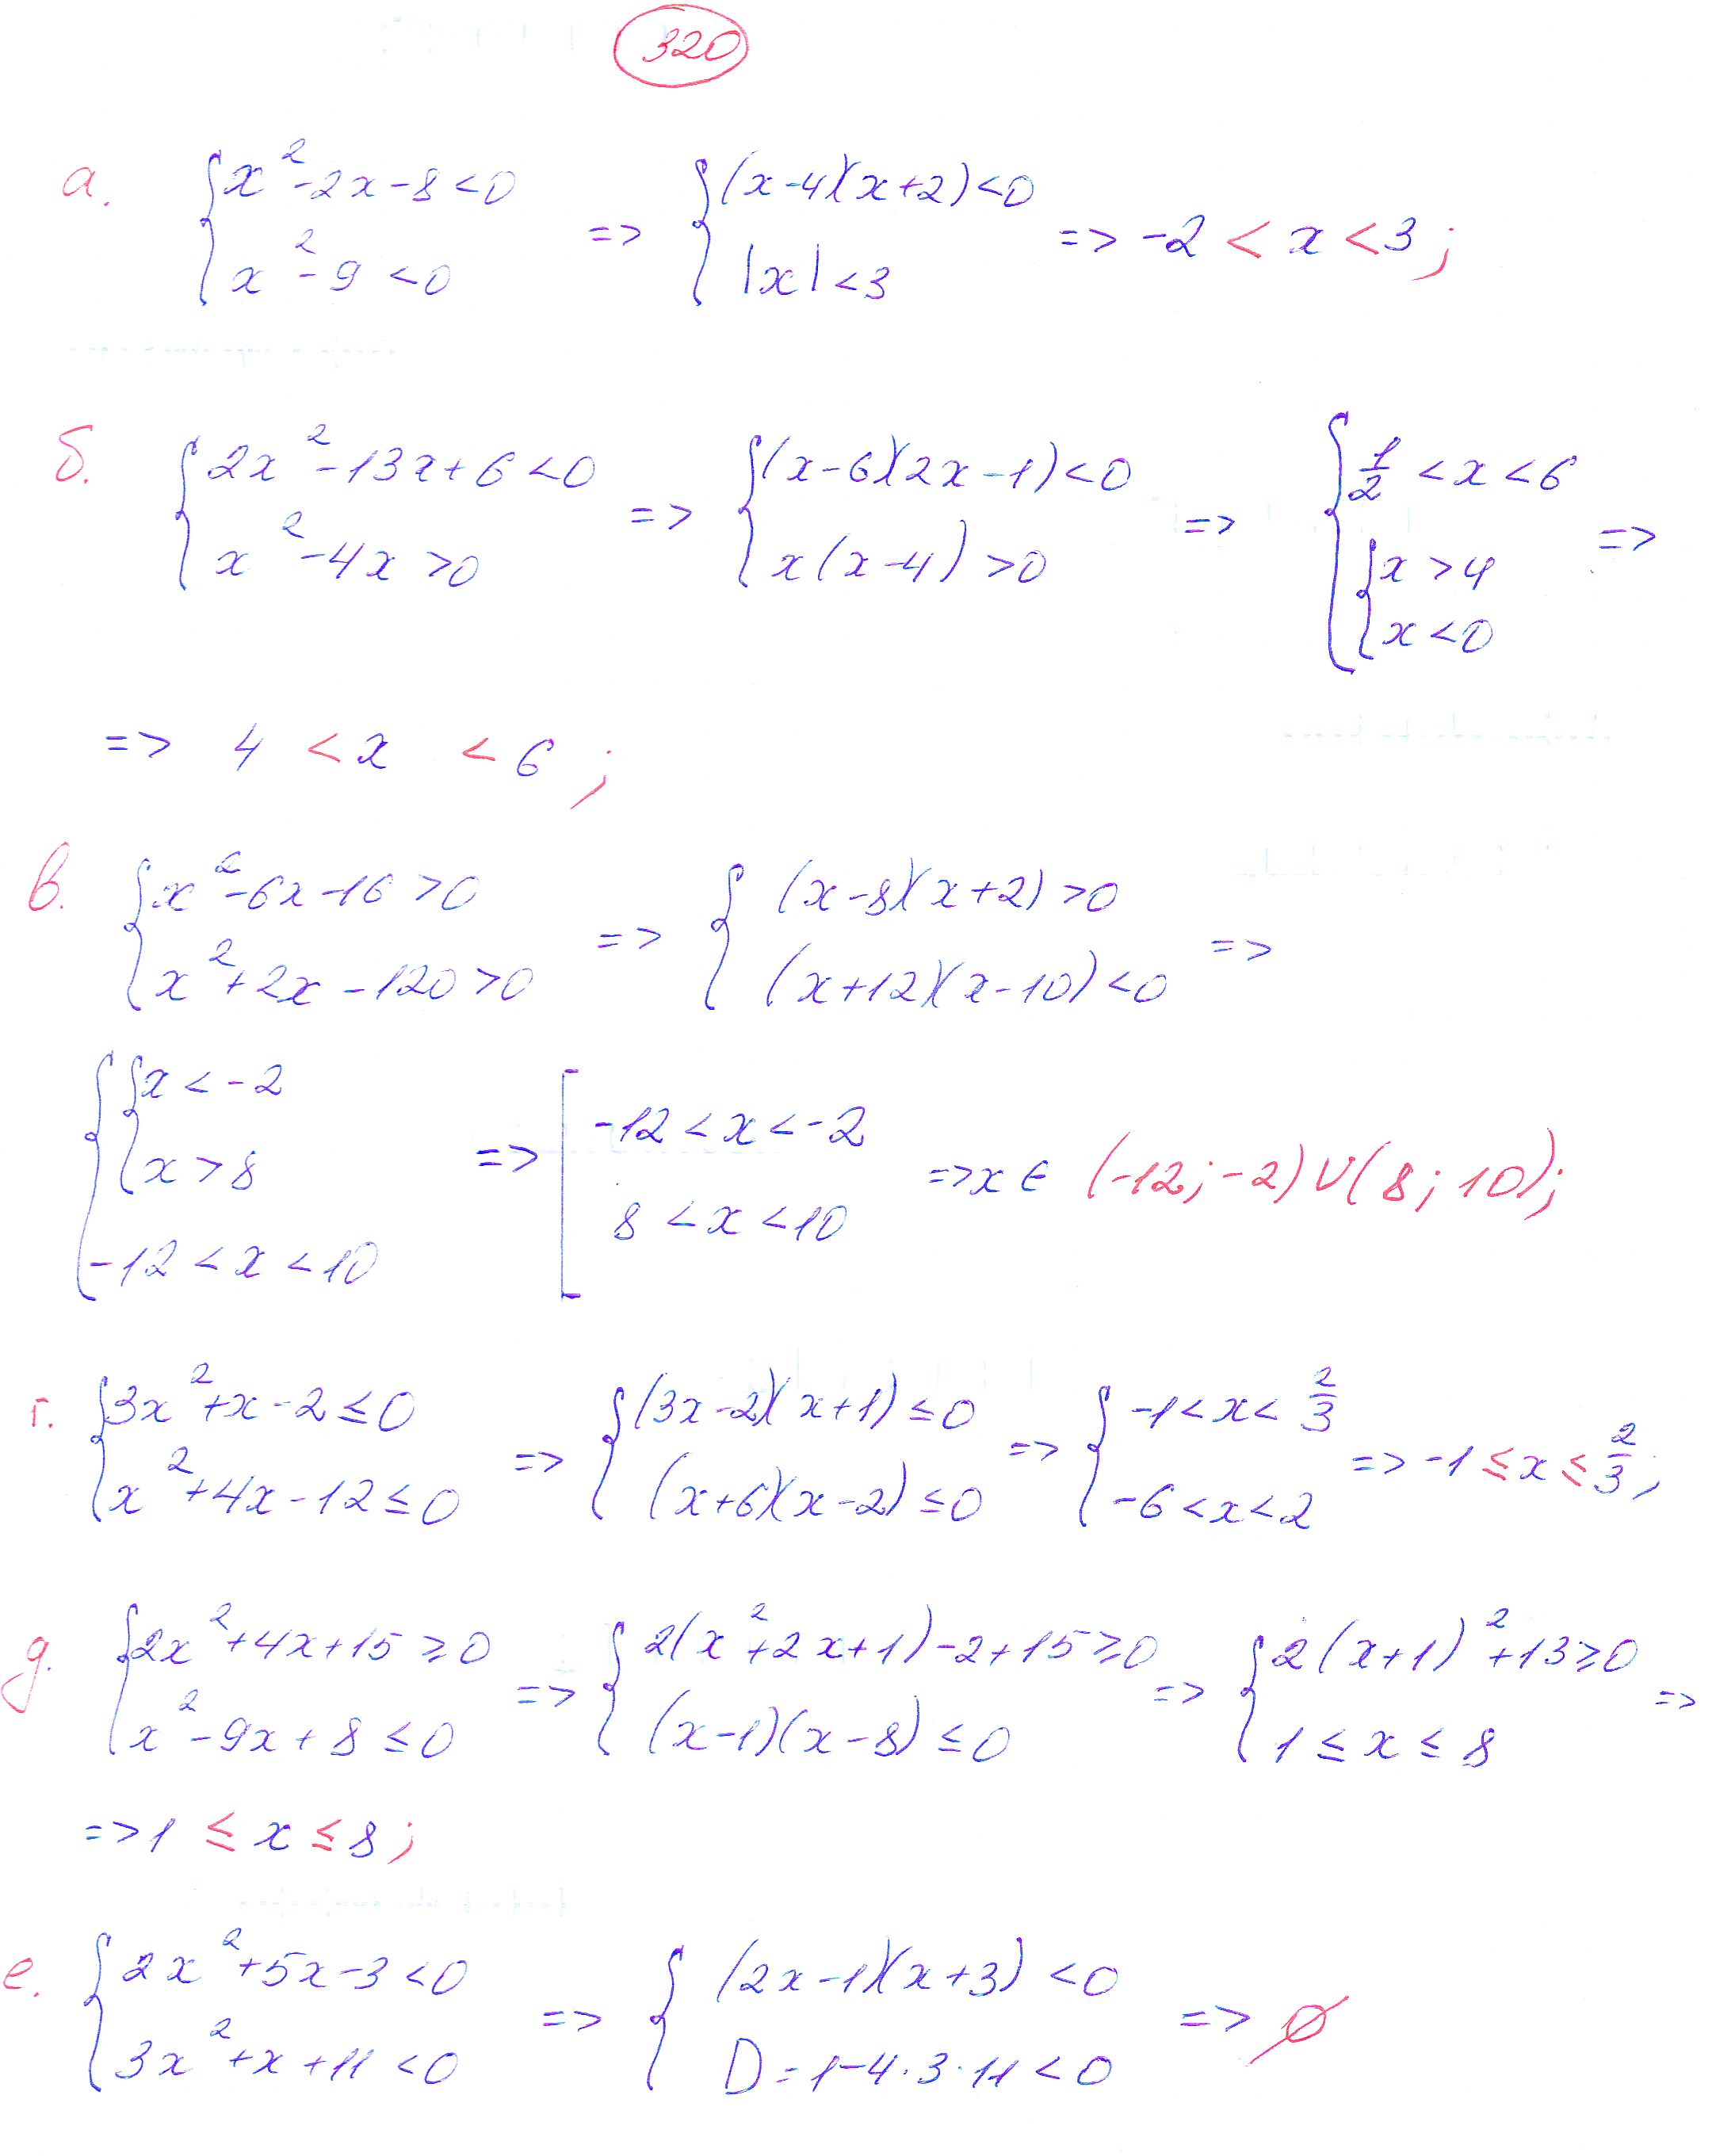 320
а. { x² - 2x - 8 < 0 ; x² - 9 < 0 => { (x-4)(x+2) < 0 ; |x| < 3 => -2 < x < 3 ;
б. { 2x² - 13x + 6 < 0 ; x² - 4x > 0 => { (x-6)(2x-1) < 0 ; x(x-4) > 0 => { 1/2 < x < 6 ; { x > 4 ; x < 0 =>
=> 4 < x < 6 ;
в. { x² - 6x - 16 > 0 ; x² + 2x - 120 > 0 => { (x-8)(x+2) > 0 ; (x+12)(x-10) < 0 =>
{ { x < -2 ; x > 8 ; -12 < x < 10 => [ -12 < x < -2 ; 8 < x < 10 => x ∈ (-12; -2) ∪ (8; 10);
г. { 3x² + x - 2 ≤ 0 ; x² + 4x - 12 ≤ 0 => { (3x-2)(x+1) ≤ 0 ; (x+6)(x-2) ≤ 0 => { -1 < x < 2/3 ; -6 < x < 2 => -1 ≤ x ≤ 2/3 ;
д. { 2x² + 4x + 15 ≥ 0 ; x² - 9x + 8 ≤ 0 => { 2(x² + 2x + 1) - 2 + 15 ≥ 0 ; (x-1)(x-8) ≤ 0 => { 2(x+1)² + 13 ≥ 0 ; 1 ≤ x ≤ 8 =>
=> 1 ≤ x ≤ 8 ;
е. { 2x² + 5x - 3 < 0 ; 3x² + x + 11 < 0 => { (2x-1)(x+3) < 0 ; D = 1 - 4·3·11 < 0 => ∅